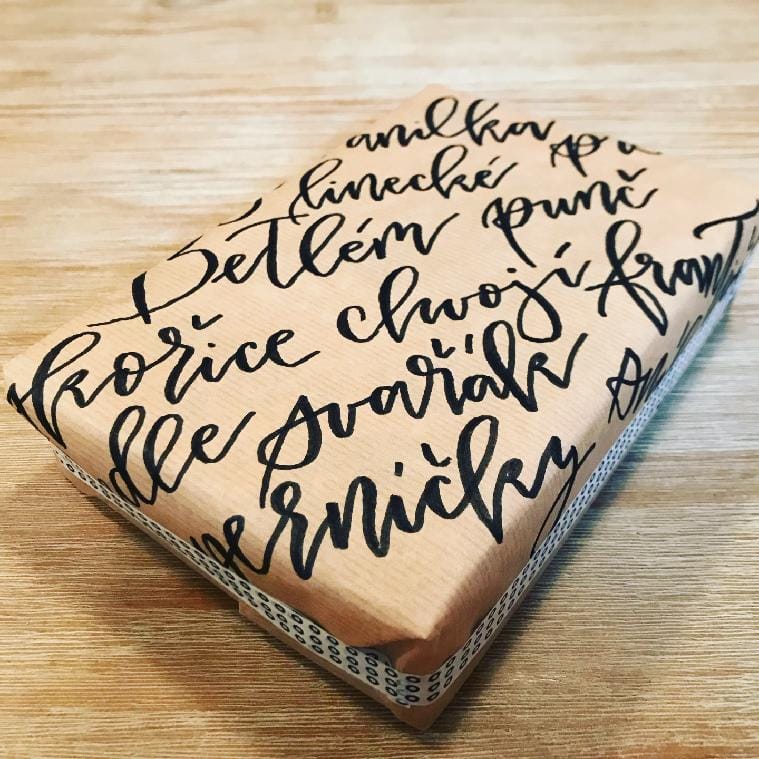 anilka pu
linecké
Betlém punč
kořice chvojí frant
dle svařák sní
perníčky